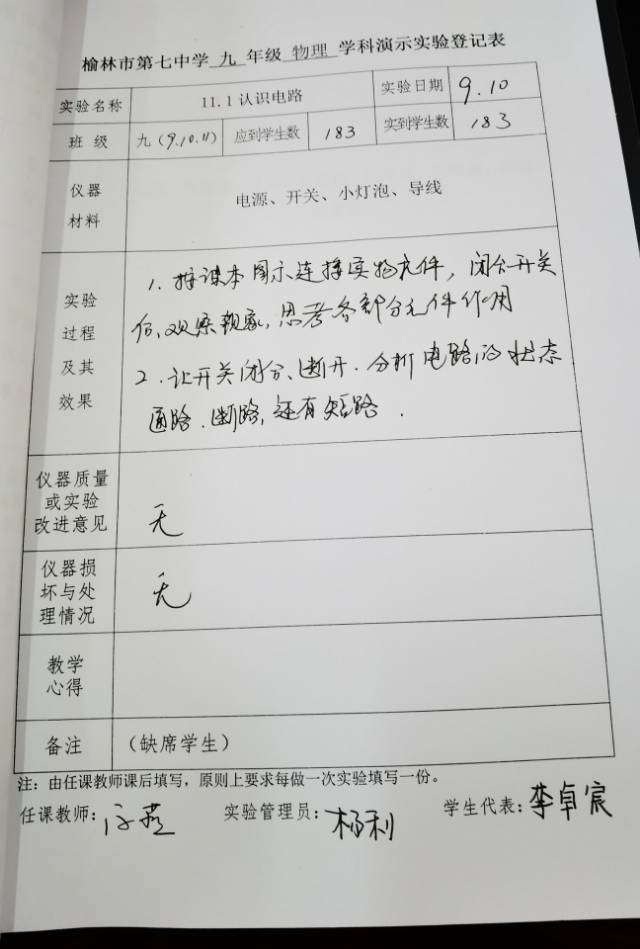 榆林市第七中学 九 年级 物理 学科演示实验登记表
实验名称 11.1 认识电路 实验日期 9.10
班 级 九(9.10.11) 应到学生数 183 实到学生数 183
仪器
材料
电源、开关、小灯泡、导线
实验
过程
及其
效果
1. 按课本图示连接实物元件, 闭合开关
后、观察现象, 思考各部分元件作用
2. 让开关闭合、断开. 分析电路的状态
通路. 断路, 还有短路.
仪器质量
或实验
改进意见
无
仪器损
坏与处
理情况
无
教学
心得
备注 (缺席学生)
注: 由任课教师课后填写，原则上要求每做一次实验填写一份。
任课教师: 实验管理员: 杨利 学生代表: 李卓宸